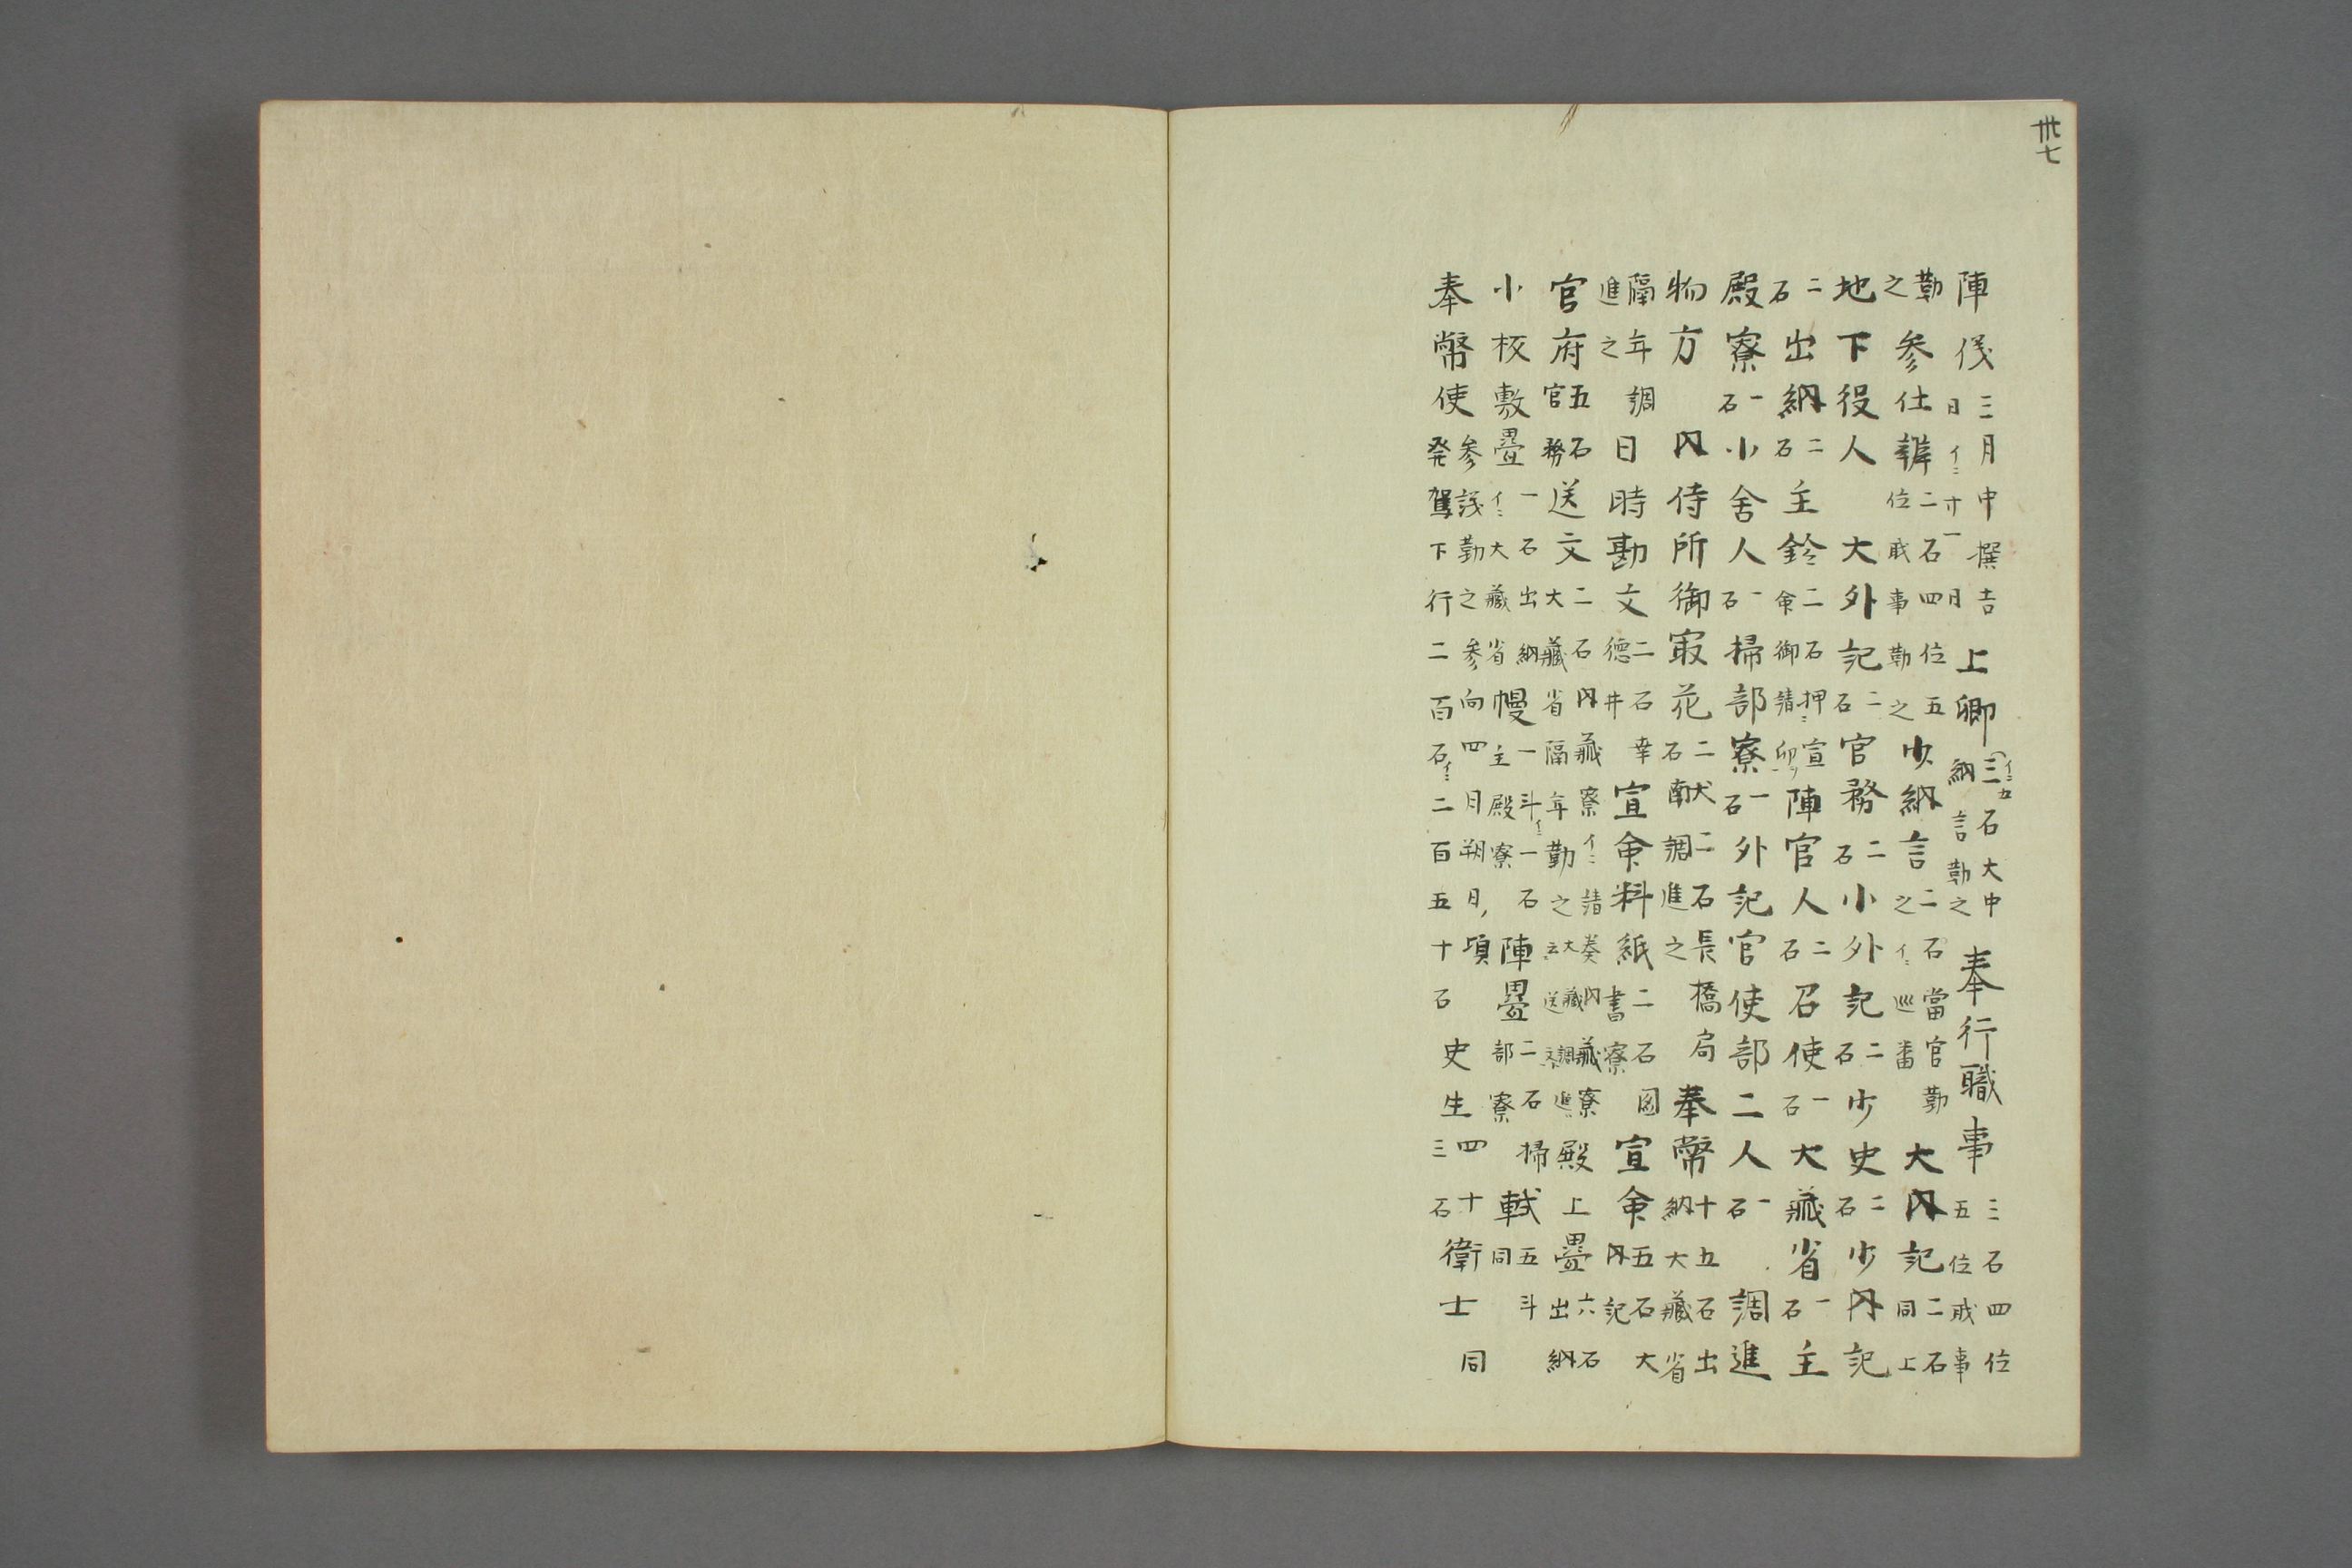 卅七
陣儀三月中撰吉日イニ寸一日上卿三石大中納言勤之イニ五奉行職事三石四位五位戝事
勤之参仕辨二石四位五位戝事勤之少納言二石當官勤之イニ巡番大内記二石同上
地下役人大外記二石官務二石小外記二石少史二石少内記
二石出納二石主鈴二石押ニ宣命御請印陣官人二石召使一石大藏省一石主
殿寮一石小舍人一石掃部寮一石外記官使部二人一石調進
物方内侍所御㝡花二石献二石長橋局調進之奉幣十五石出納大藏省
隔年調進之日時勘文二石幸德井宣命料紙二石圖書寮宣命五石大内記
官府五石官務送文二石内藏寮イニ請奏内藏寮大藏省隔年勤之殿上疊六石出納
小板敷疊一石出納イニ大藏省幔一斗イニ一石主殿寮陣疊二石掃部寮軾五斗同
奉幣使参議勤之参向四月朔日頃発駕下行二百石イニ二百五十石史生四十三石衛士同